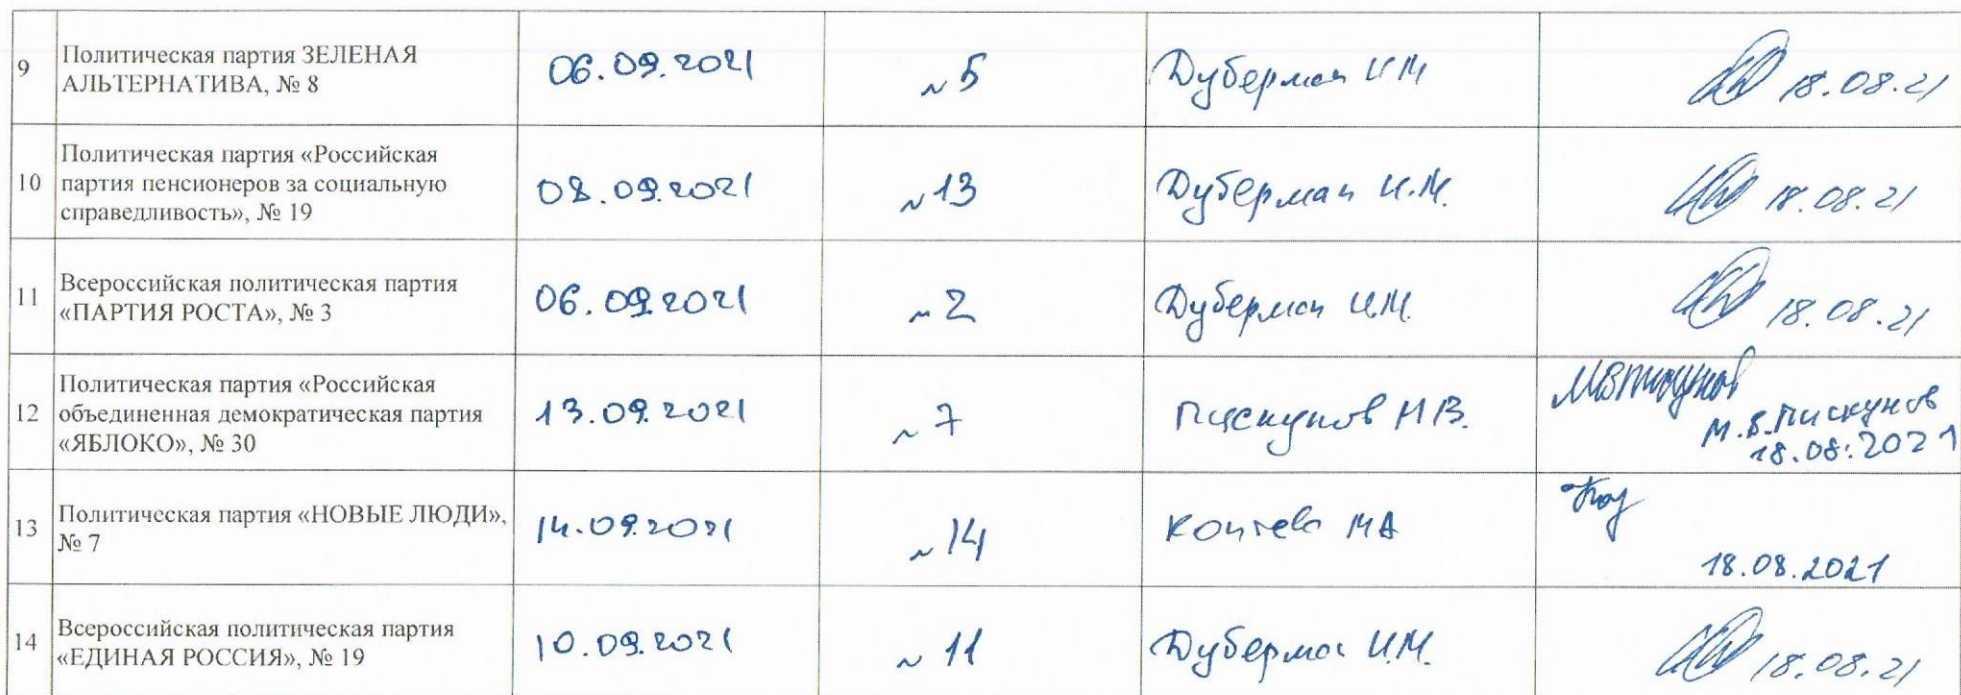 9 Политическая партия ЗЕЛЕНАЯ АЛЬТЕРНАТИВА, № 8 06.09.2021 ~5 Дуберман И.М 18.08.21
10 Политическая партия «Российская партия пенсионеров за социальную справедливость», № 19 08.09.2021 ~13 Дуберман И.М. 18.08.21
11 Всероссийская политическая партия «ПАРТИЯ РОСТА», № 3 06.09.2021 ~2 Дуберман И.М. 18.08.21
12 Политическая партия «Российская объединенная демократическая партия «ЯБЛОКО», № 30 13.09.2021 ~7 Пискунов М.В. М.В.Пискунов 18.08.2021
13 Политическая партия «НОВЫЕ ЛЮДИ», № 7 14.09.2021 ~14 МА 18.08.2021
14 Всероссийская политическая партия «ЕДИНАЯ РОССИЯ», № 19 10.09.2021 ~11 Дуберман И.М. 18.08.21